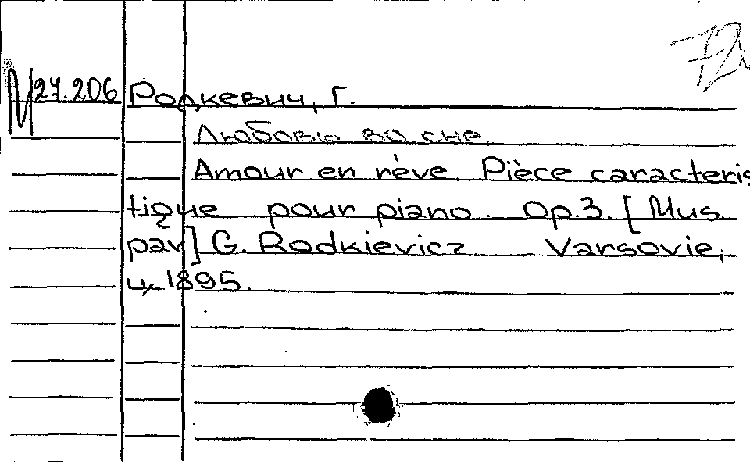 72
M 27.206 Родкевич, Г.
Любовь во сне.
Amour en rève. Pièce caracteris
tique pour piano. Op.3. [Mus.
par] G. Rodkievicz Varsovie,
ц. 1895.